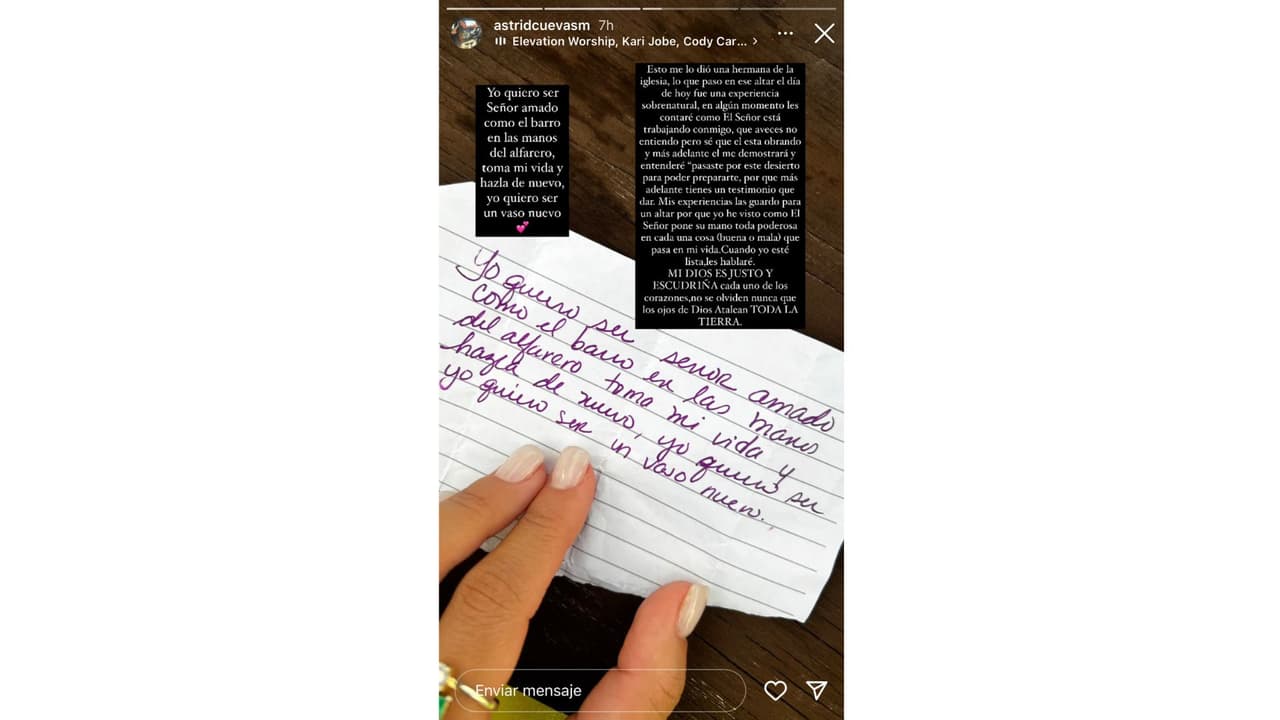 astridcuevasm 7h
Elevation Worship, Kari Jobe, Cody Car... >
Yo quiero ser
Señor amado
como el barro
en las manos
del alfarero,
toma mi vida y
hazla de nuevo,
yo quiero ser
un vaso nuevo
💕
Esto me lo dió una hermana de la
iglesia, lo que paso en ese altar el día
de hoy fue una experiencia
sobrenatural, en algún momento les
contaré como El Señor está
trabajando conmigo, que aveces no
entiendo pero sé que el esta obrando
y más adelante el me demostrará y
entenderé “pasaste por este desierto
para poder prepararte, por que más
adelante tienes un testimonio que
dar. Mis experiencias las guardo para
un altar por que yo he visto como El
Señor pone su mano toda poderosa
en cada una cosa (buena o mala) que
pasa en mi vida.Cuando yo esté
lista,les hablaré.
MI DIOS ES JUSTO Y
ESCUDRIÑA cada uno de los
corazones,no se olviden nunca que
los ojos de Dios Atalean TODA LA
TIERRA.
Yo quiero ser senor amado
como el barro en las manos
del alfarero toma mi vida y
hazla de nuevo, yo quiero ser
yo quiero ser un vaso nuevo.
Enviar mensaje